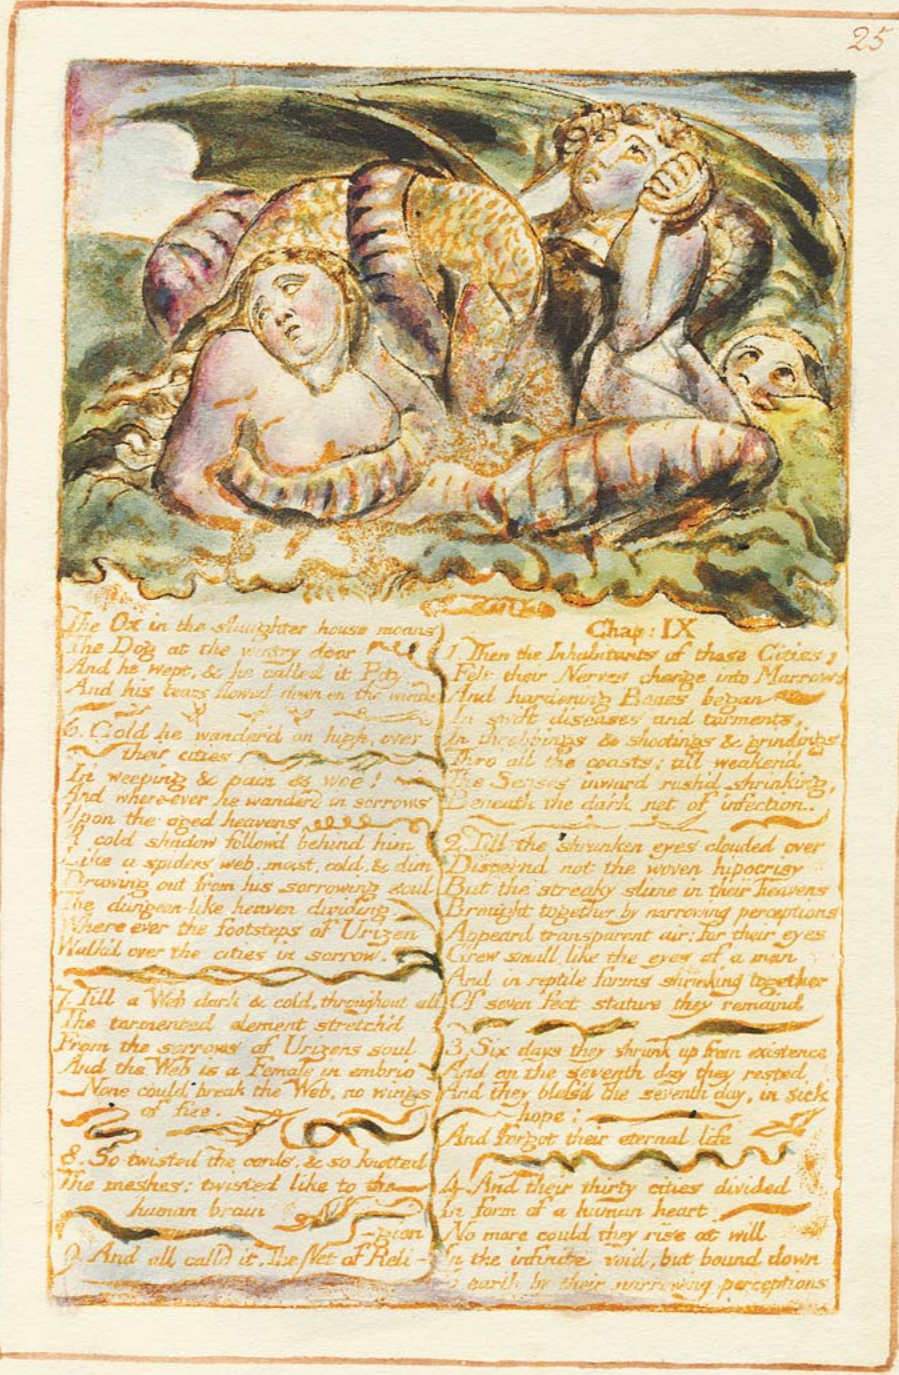 25
The Ox in the slaughter house moans
The Dog at the wintry door
And he wept, & he called it Pity
And his tears flowed down on the winds
6. Cold he wander'd on high, over
their cities
In weeping & pain & woe!
And where-ever he wanderd in sorrows
Upon the aged heavens
A cold shadow follow'd behind him
Like a spiders web, moist, cold, & dim
Drawing out from his sorrowing soul
The dungeon-like heaven dividing
Where ever the footsteps of Urizen
Walk'd over the cities in sorrow.
7. Till a Web dark & cold, throughout all
The tormented element stretch'd
From the sorrows of Urizens soul
And the Web is a Female in embrio
None could break the Web, no wings
of fire.
8. So twisted the cords, & so knotted
The meshes: twisted like to the
human brain
9. And all calld it, The Net of Reli-
-gion
Chap: IX
1. Then the Inhabitants of those Cities;
Felt their Nerves change into Marrow
And hardening Bones began
In swift diseases and torments,
In throbbings & shootings & grindings
Thro' all the coasts; till weaken'd
The Senses inward rush'd shrinking,
Beneath the dark net of infection.
2. Till the shrunken eyes clouded over
Discernd not the woven hipocrisy
But the streaky slime in their heavens
Brought together by narrowing perceptions
Appeard transparent air; for their eyes
Grew small like the eyes of a man
And in reptile forms shrinking together
Of seven feet stature they remaind
3. Six days they shrunk up from existence
And on the seventh day they rested
And they bless'd the seventh day, in sick
hope:
And forgot their eternal life
4. And their thirty cities divided
In form of a human heart
No more could they rise at will
In the infinite void, but bound down
To earth by their narrowing perceptions